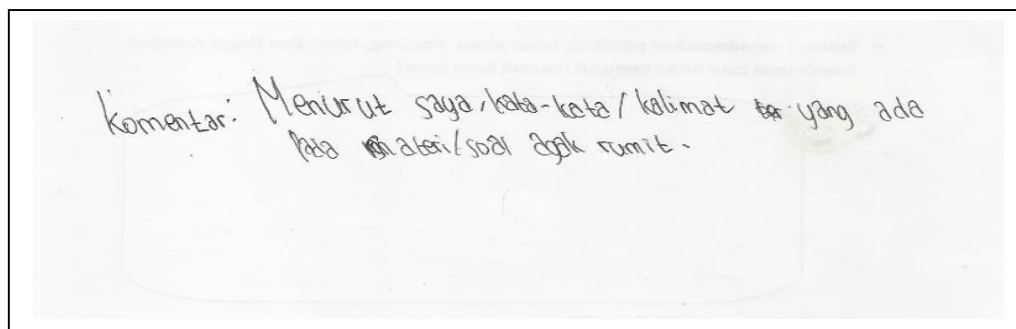 Komentar: Menurut saya, kata-kata/kalimat yang ada
Pada materi/soal agak rumit.